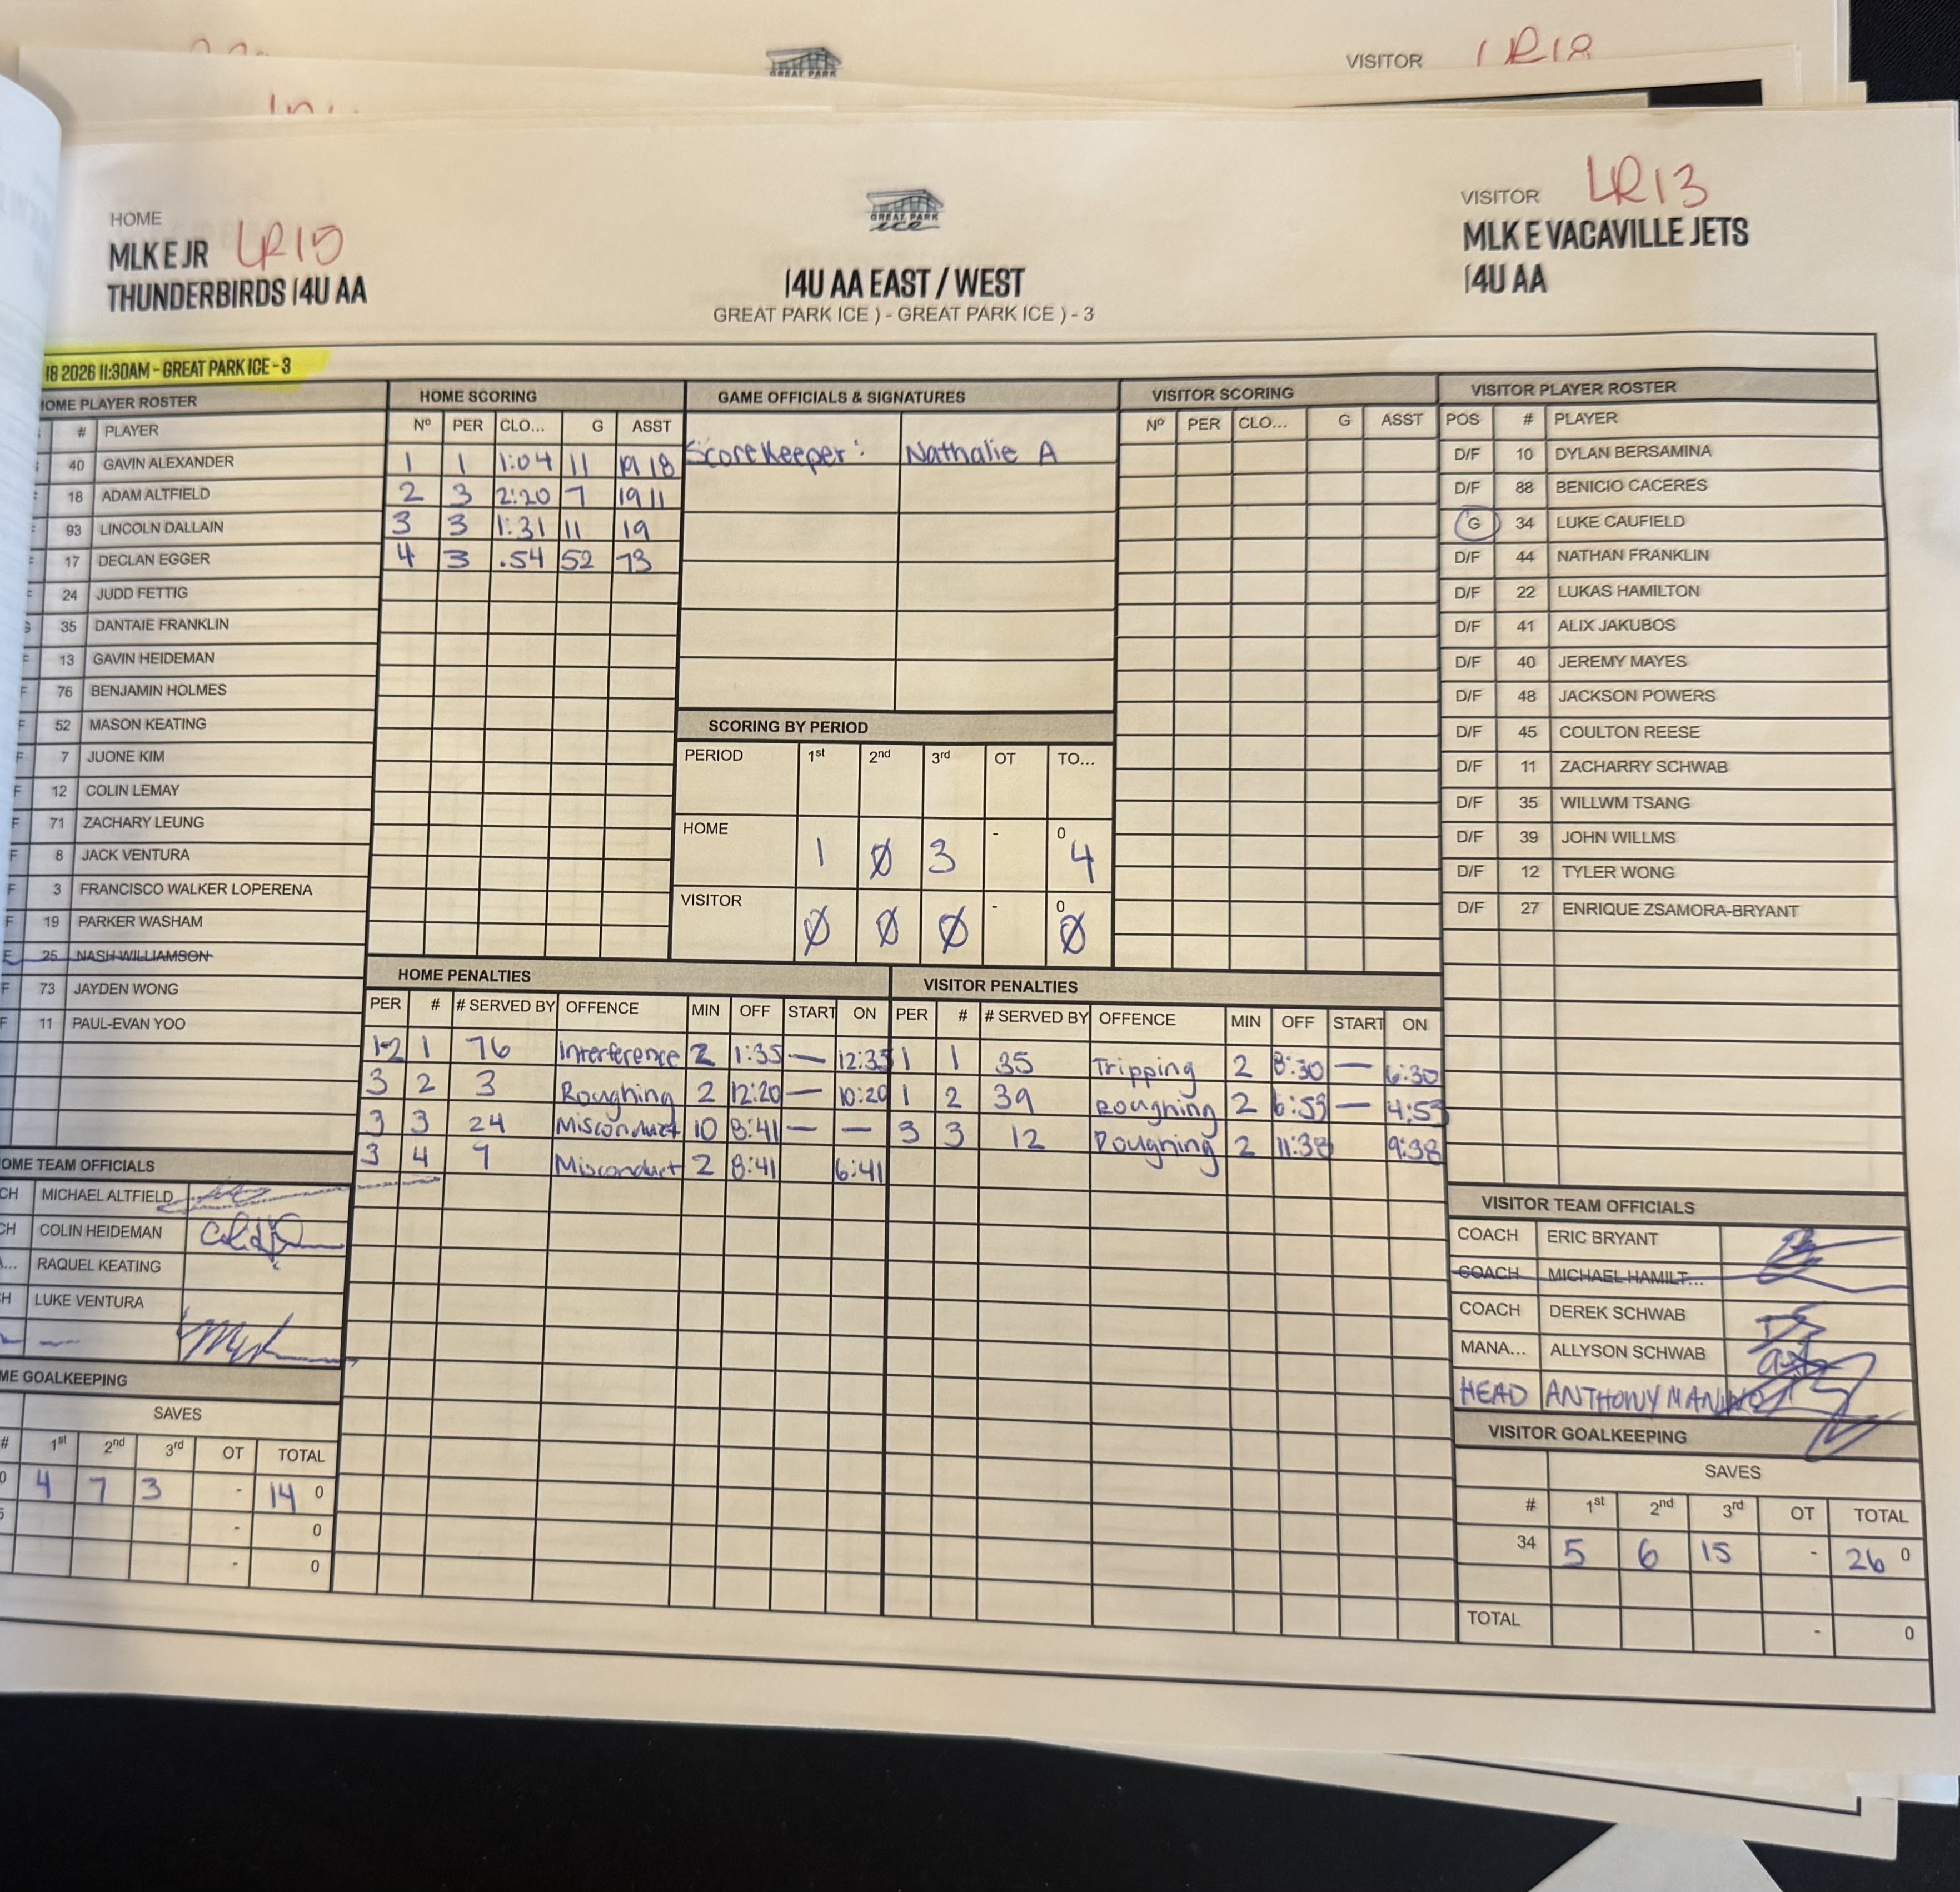 VISITOR LR18
GREAT PARK
HOME
MLK E JR LR15
THUNDERBIRDS 14U AA
GREAT PARK
ice
14U AA EAST / WEST
GREAT PARK ICE ) - GREAT PARK ICE ) - 3
VISITOR LR13
MLK E VACAVILLE JETS
14U AA
18 2026 11:30AM - GREAT PARK ICE - 3
OME PLAYER ROSTER
# PLAYER
40 GAVIN ALEXANDER
18 ADAM ALTFIELD
93 LINCOLN DALLAIN
17 DECLAN EGGER
24 JUDD FETTIG
35 DANTAIE FRANKLIN
13 GAVIN HEIDEMAN
F 76 BENJAMIN HOLMES
F 52 MASON KEATING
F 7 JUONE KIM
F 12 COLIN LEMAY
F 71 ZACHARY LEUNG
F 8 JACK VENTURA
F 3 FRANCISCO WALKER LOPERENA
F 19 PARKER WASHAM
F 25 NASH WILLIAMSON
F 73 JAYDEN WONG
F 11 PAUL-EVAN YOO
HOME SCORING
Nº PER CLO... G ASST
1 1 1:04 11 19 18
2 3 2:20 7 19 11
3 3 1:31 11 19
4 3 .54 52 73
GAME OFFICIALS & SIGNATURES
Scorekeeper: Nathalie A
SCORING BY PERIOD
PERIOD 1st 2nd 3rd OT TO...
HOME 1 Ø 3 - 0 4
VISITOR Ø Ø Ø - 0 Ø
VISITOR SCORING
Nº PER CLO... G ASST
VISITOR PLAYER ROSTER
POS # PLAYER
D/F 10 DYLAN BERSAMINA
D/F 88 BENICIO CACERES
G 34 LUKE CAUFIELD
D/F 44 NATHAN FRANKLIN
D/F 22 LUKAS HAMILTON
D/F 41 ALIX JAKUBOS
D/F 40 JEREMY MAYES
D/F 48 JACKSON POWERS
D/F 45 COULTON REESE
D/F 11 ZACHARRY SCHWAB
D/F 35 WILLWM TSANG
D/F 39 JOHN WILLMS
D/F 12 TYLER WONG
D/F 27 ENRIQUE ZSAMORA-BRYANT
HOME PENALTIES
PER # # SERVED BY OFFENCE MIN OFF START ON
1-2 1 76 Interference 2 1:35 — 12:35
3 2 3 Roughing 2 12:20 — 10:20
3 3 24 Misconduct 10 8:41 — —
3 4 7 Misconduct 2 8:41 6:41
VISITOR PENALTIES
PER # # SERVED BY OFFENCE MIN OFF START ON
1 1 35 Tripping 2 8:30 — 6:30
1 2 39 Roughing 2 6:53 — 4:53
3 3 12 Roughing 2 11:38 9:38
OME TEAM OFFICIALS
CH MICHAEL ALTFIELD
CH COLIN HEIDEMAN
... RAQUEL KEATING
H LUKE VENTURA
ME GOALKEEPING
SAVES
# 1st 2nd 3rd OT TOTAL
0 4 7 3 - 14 0
- 0
- 0
VISITOR TEAM OFFICIALS
COACH ERIC BRYANT
COACH MICHAEL HAMILT...
COACH DEREK SCHWAB
MANA... ALLYSON SCHWAB
HEAD ANTHONY
VISITOR GOALKEEPING
SAVES
# 1st 2nd 3rd OT TOTAL
34 5 6 15 - 26 0
TOTAL - 0